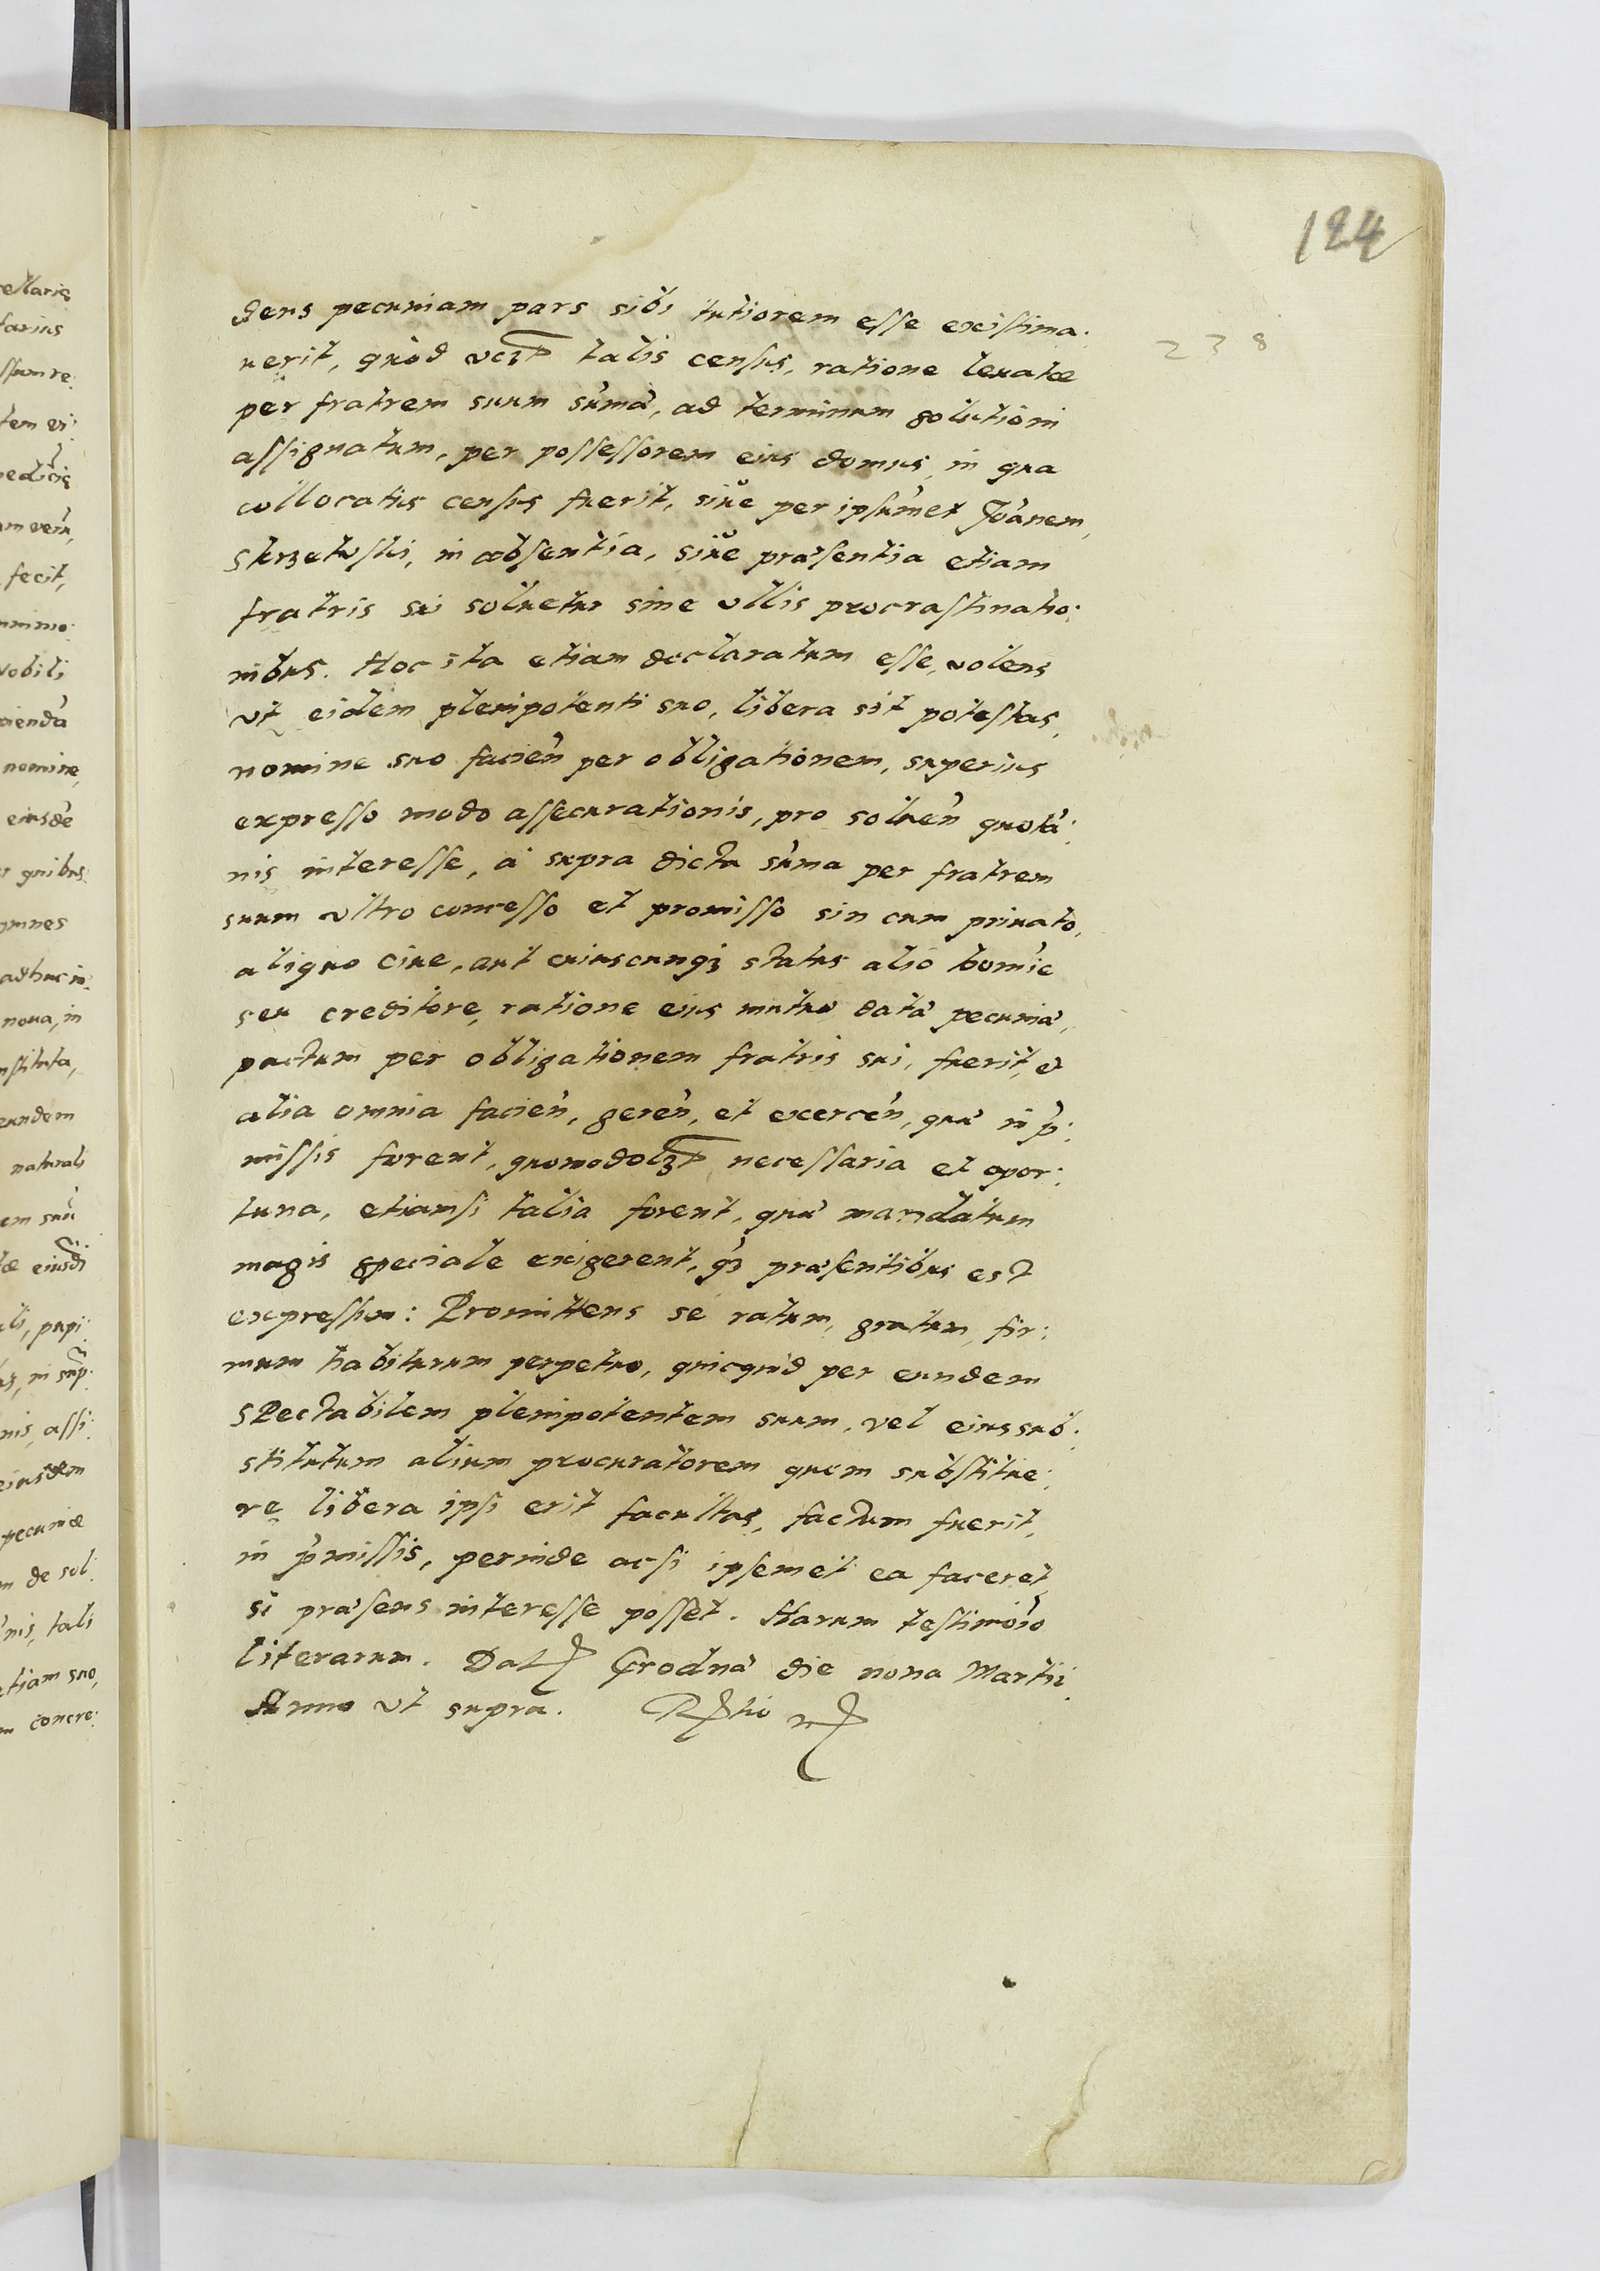 124
238
dens pecuniam pars sibi tutiorem esse existima:
uerit, quòd vczt talis census, ratione leuatæ
per fratrem suum sum̃a, ad terminum solutioni
assignatum, per possessorem eius domus in qua
collocatus census fuerit, siue per ipsum̃et Joãnem,
Skrzetuski, in absentia, siue præsentia etiam
fratris sui soluetur sine vllis procrastinatio:
nibus. Hoc ita etiam declaratum esse, volens
vt eidem plenipotenti suo, libera sit potestas,
nomine suo facieñ per obligationem, superius
expresso modo assecurationis, pro solueñ quotã:
nis interesse, à supra dicta sum̃a per fratrem
suum vltro concesso et promisso sin cum priuato,
aliquo ciue, aut cuiuscunqz status alio homĩe
seu creditore, ratione eius mutuo data pecunia,
pactum per obligationem fratris sui, fuerit, et
alia omnia facieñ, gereñ, et exerceñ, quæ in p̃:
missis forent, quomodolzt necessaria et opor:
tuna, etiamsi talia forent, quæ mandatum
magis speciale exigerent, qz præsentibus est
expressum: Promittens se ratum, gratum, fir:
mum habiturum perpetuo, quicquid per eundem
Spectabilem plenipotentem suum, vel eius sub:
stitutum alium procuratorem quem substitue:
re libera ipsi erit facultas, factum fuerit,
in p̃missis, perinde acsi ipsemet ea faceret,
si præsens interesse posset. Harum testimoĩo
literarum. Dat Grodnæ die nona Martii
Anno vt supra.
ellariç
tarius
ssum re:
fecit,
nobili
nomine,
eiusdẽ
quibus
omnes
adhuc in:
noua, in
nstituta,
eundem
naturali
em suũ
assi:
eiusdem
pecuniæ
de sol:
nis, tali
etiam suo,
concre: